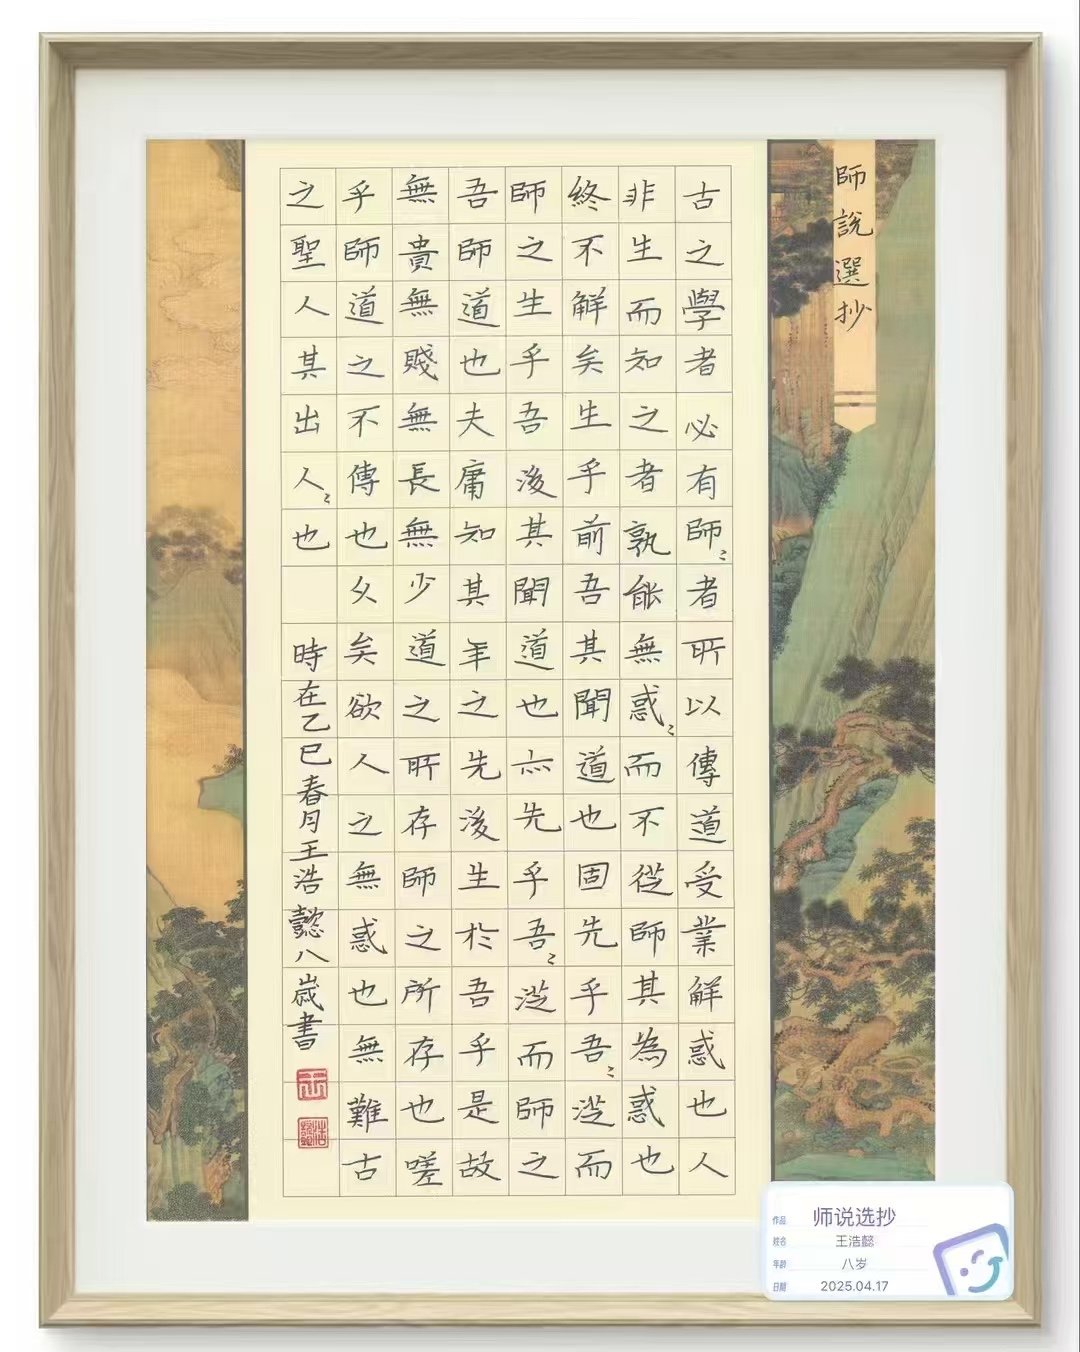 師說選抄
古之學者必有師〻者所以傳道受業解惑也人
非生而知之者孰能無惑〻而不從師其為惑也
終不解矣生乎前吾其聞道也固先乎吾〻從而
師之生乎吾後其聞道也亦先乎吾〻從而師之
吾師道也夫庸知其年之先後生於吾乎是故
無貴無賤無長無少道之所存師之所存也嗟
乎師道之不傳也久矣欲人之無惑也無難古
之聖人其出人〻也 時在乙巳春月王浩懿八歲書
王
浩懿
作品 师说选抄
姓名 王浩懿
年龄 八岁
日期 2025.04.17